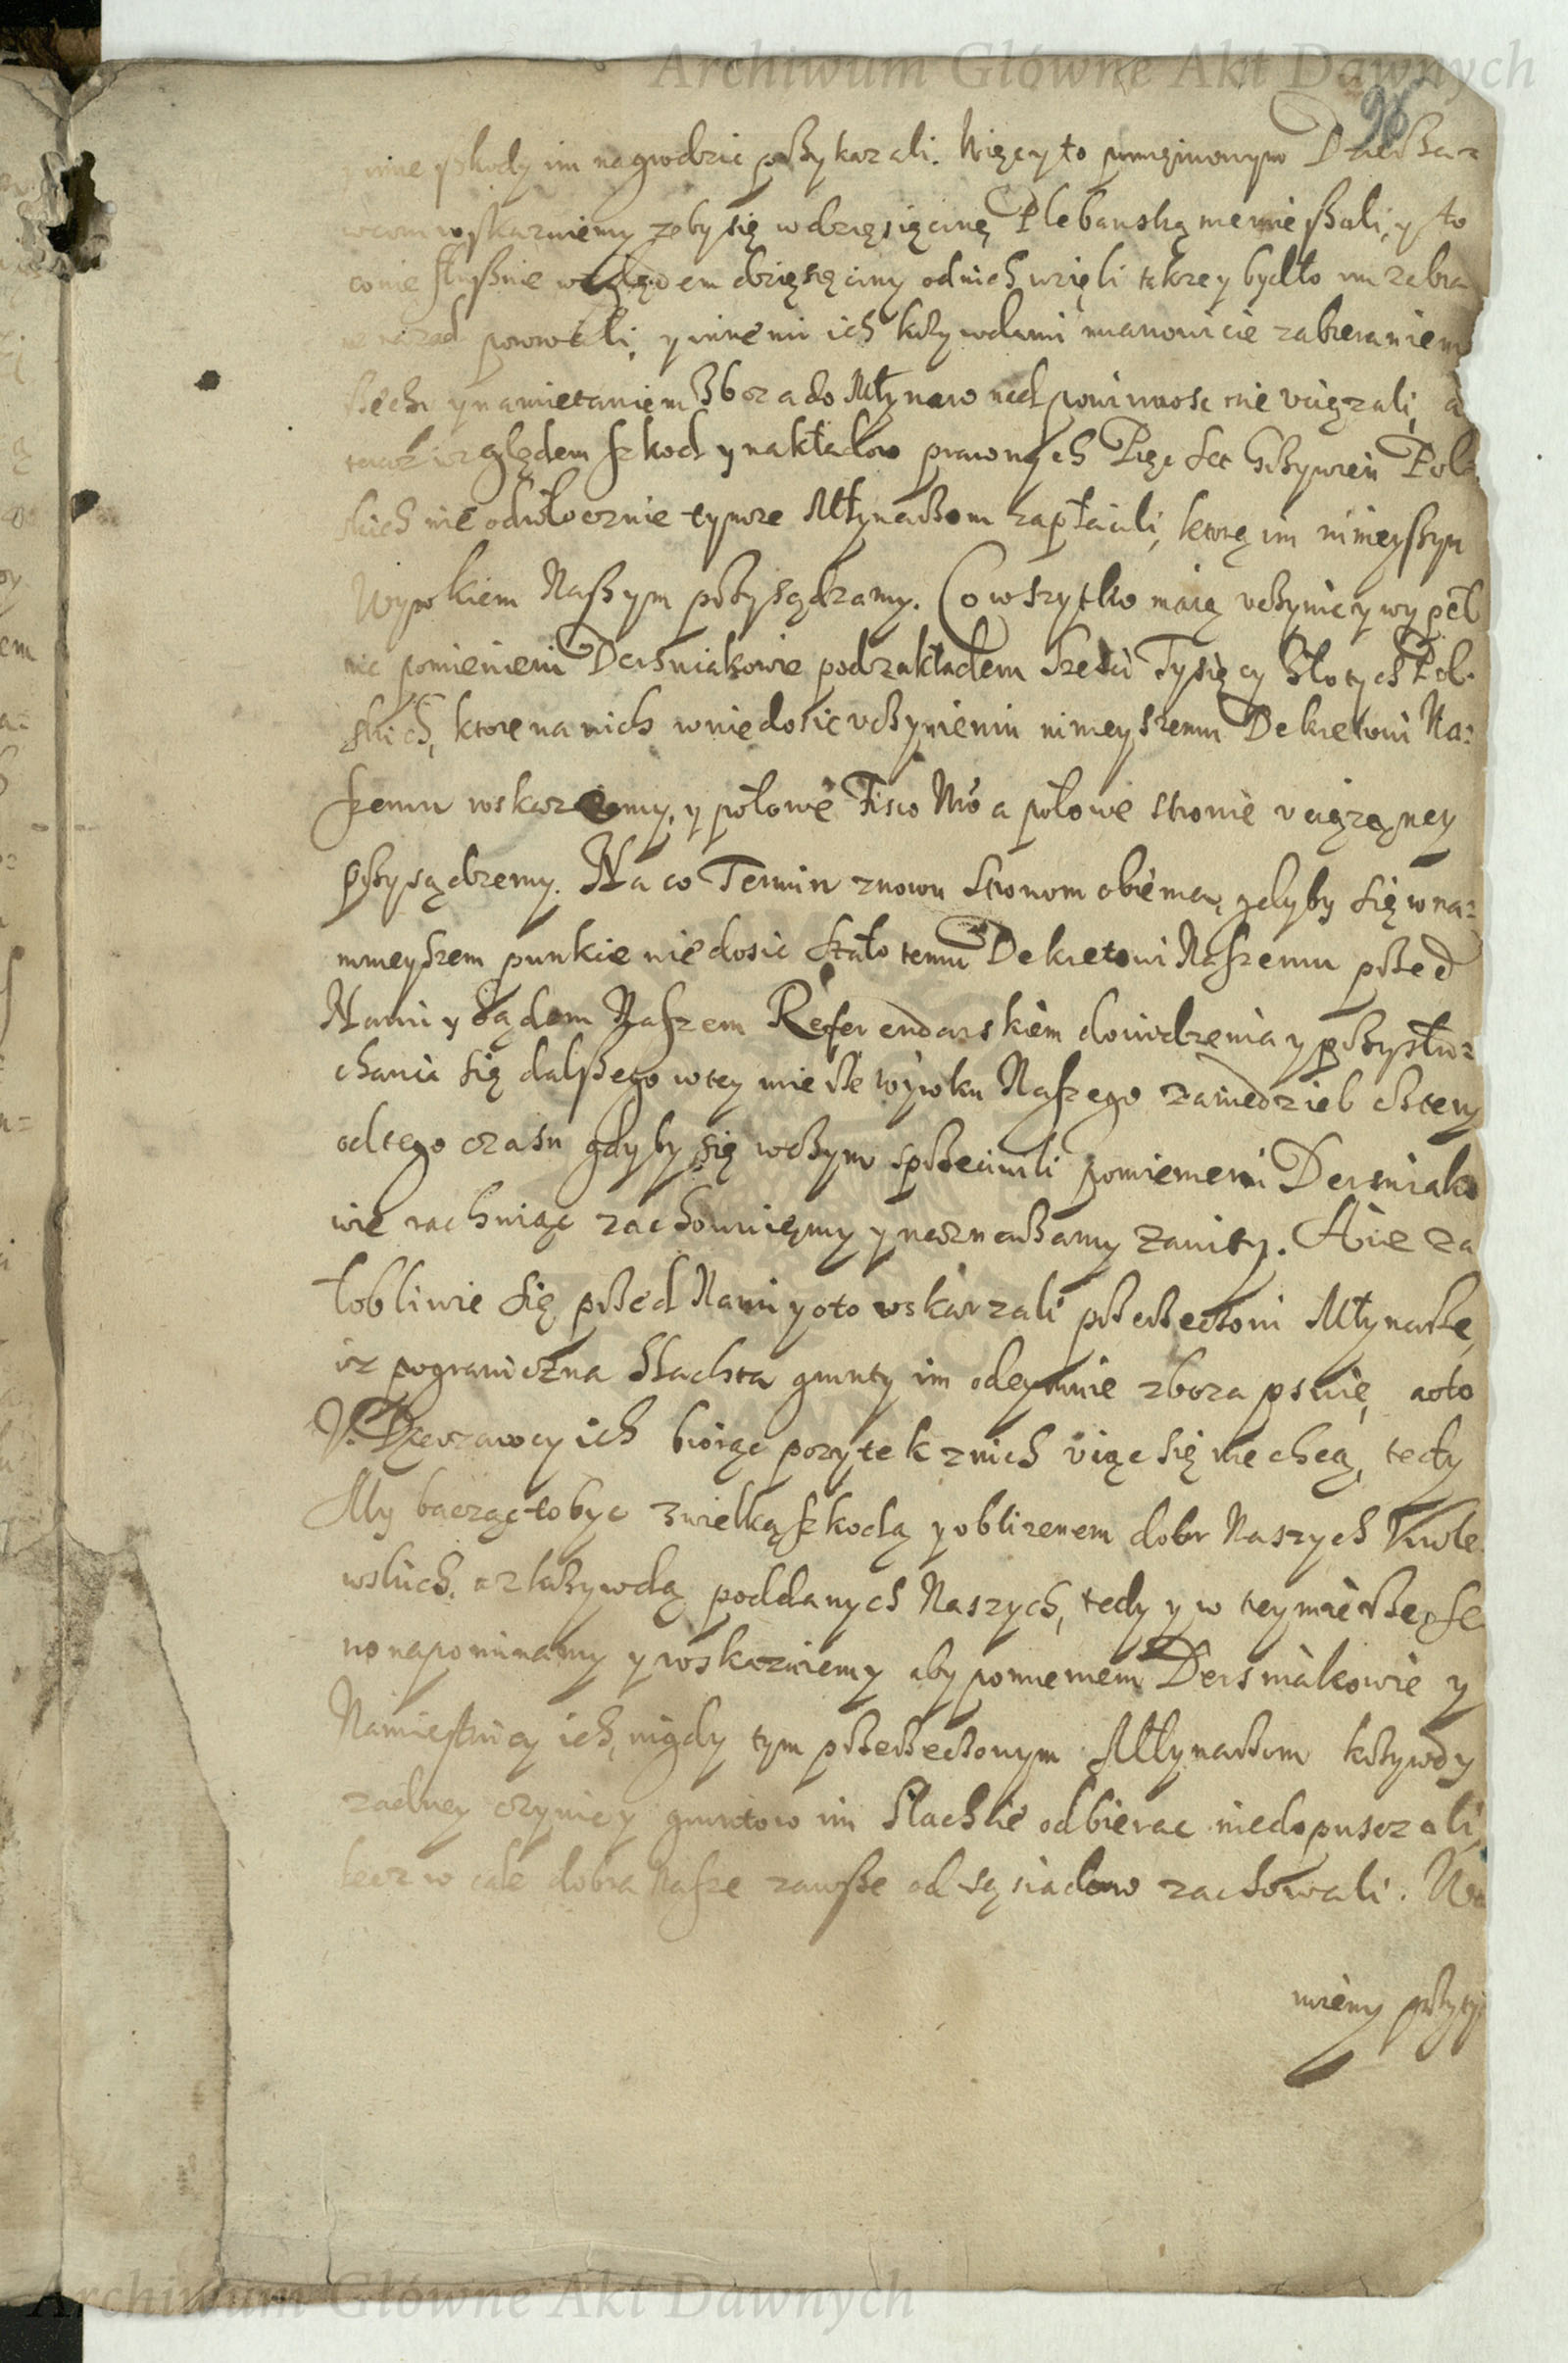 Archiwum Główne Akt Dawnych
96
inne szkody im nagrodzic przykazali. Więc y to pomienionym Dzierża-
wcom wskazuiemy zeby się w dzięsięcinę Plebanską nie mieszali, y to
co nie słusznie względem dzięsęciny od nich wzięli także y bydło im zabra
ne nazad powrocili, y innemi ich krzywdami mianowicie zabieraniem
y namietaniem zboza do Młynow nad powinnosc nie uciązali, a
teraz względem szkod y nakładow prawnych Pięc set Grzywien Pol-
skich nie odwłocznie tymze Młynarzom zapłacili, ktorą im ninieyszym
Wyrokiem Naszym przysądzamy. Co wszytko maią uczynic y wypeł
nic pomienieni Dersniakowie pod zakładem Sześci Tysięcy Złotych Pol-
skich, ktore na nich w niedosic uczynieniu ninieyszemu Dekretowi Na-
szemu wskazuiemy, y połowę Fisco Nro a połowe stronie uciązoney
przysądzemy. Na co Termin znowu stronom obiema, gdyby się w na-
mnieyszem punkcie nie dosic stało temu Dekretowi Naszemu przed
Nami y Sądem Naszem Referendarskiem dowodzenia y przysłu-
chania się dalszego w tey mierze wyroku Naszego za niedziel cztery
od tego czasu gdyby się w czym sprzeciwili pomienieni Dersniako
wie rachuiąc zachowuięmy y naznaczamy zawity. A ize za
łobliwie się przed Nami y o to uskarzali przerzeczoni Młynarze,
iz pograniczna Slachta grunty im odeymuie zboza psuie, a o to
U. Dzierzawcy ich biorąc pozytek z nich uiąc się nie chcą, tedy
My bacząc to byc z wielką szkodą y oblizenem dobr Naszych Krole
wskich, a z krzywdą poddanych Naszych, tedy y w tey mierze se
rio napominamy y wskazuiemy aby pomienieni Dersniakowie y
Namiesnicy ich, nigdy tym przerzeczonym Młynarzom krzywdy
zadney czynic y gruntow im Slachcie odbierac nie dopuszczali,
lecz w cale dobra Nasze zawsze od sąsiadow zachowali. Wa
ruiemy przyty
Archiwum Główne Akt Dawnych